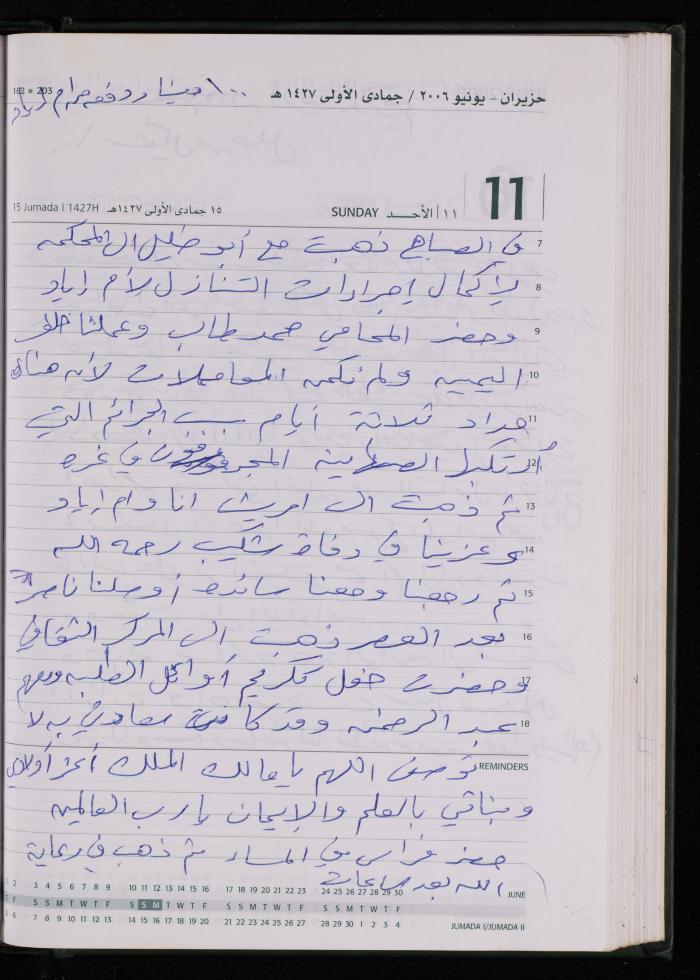 162 = 203
١٠٠ دينار دفعه مرام اياد
حزيران - يونيو ٢٠٠٦ / جمادى الأولى ١٤٢٧ هـ
15 Jumada I 1427H ١٥ جمادى الأولى ١٤٢٧هـ SUNDAY ١١ الأحـد 11
7 في الصباح ذهبت مع أبو خليل الى المحكمه
8 لإكمال إجراءات التنازل لأم إياد
9 وحضر المحامي محمد طالب وعملنا خلف
10 اليمين ولم نكمل المعاملات لأنه هناك
11 حداد ثلاثة أيام بسبب الجرائم التي
12 ارتكبها الصهاينة المجرمون في غزه
13 ثم ذهبت الى انا وام إياد
14 وعزينا في وفاة شكيب رحمه الله
15 ثم رجعنا ومعنا سائده أوصلنا ناصر
16 بعد العصر ذهبت الى المركز الثقافي
17 وحضرت حفل تكريم أوائل الطلبه ومنهم
18 عبد الرحمن وقد كانت سعادتي به لا
REMINDERS توصف اللهم يا مالك الملك أعز أولادي
وبناتي بالعلم والإيمان يا رب العالمين
حضر فراس في المساء ثم ذهب في رعاية
الله بعد ساعات
1 2 3 4 5 6 7 8 9 10 11 12 13 14 15 16 17 18 19 20 21 22 23 24 25 26 27 28 29 30 JUNE
T F S S M T W T F S S M T W T F S S M T W T F S S M T W T F
5 6 7 8 9 10 11 12 13 14 15 16 17 18 19 20 21 22 23 24 25 26 27 28 29 30 1 2 3 4 JUMADA I/JUMADA II